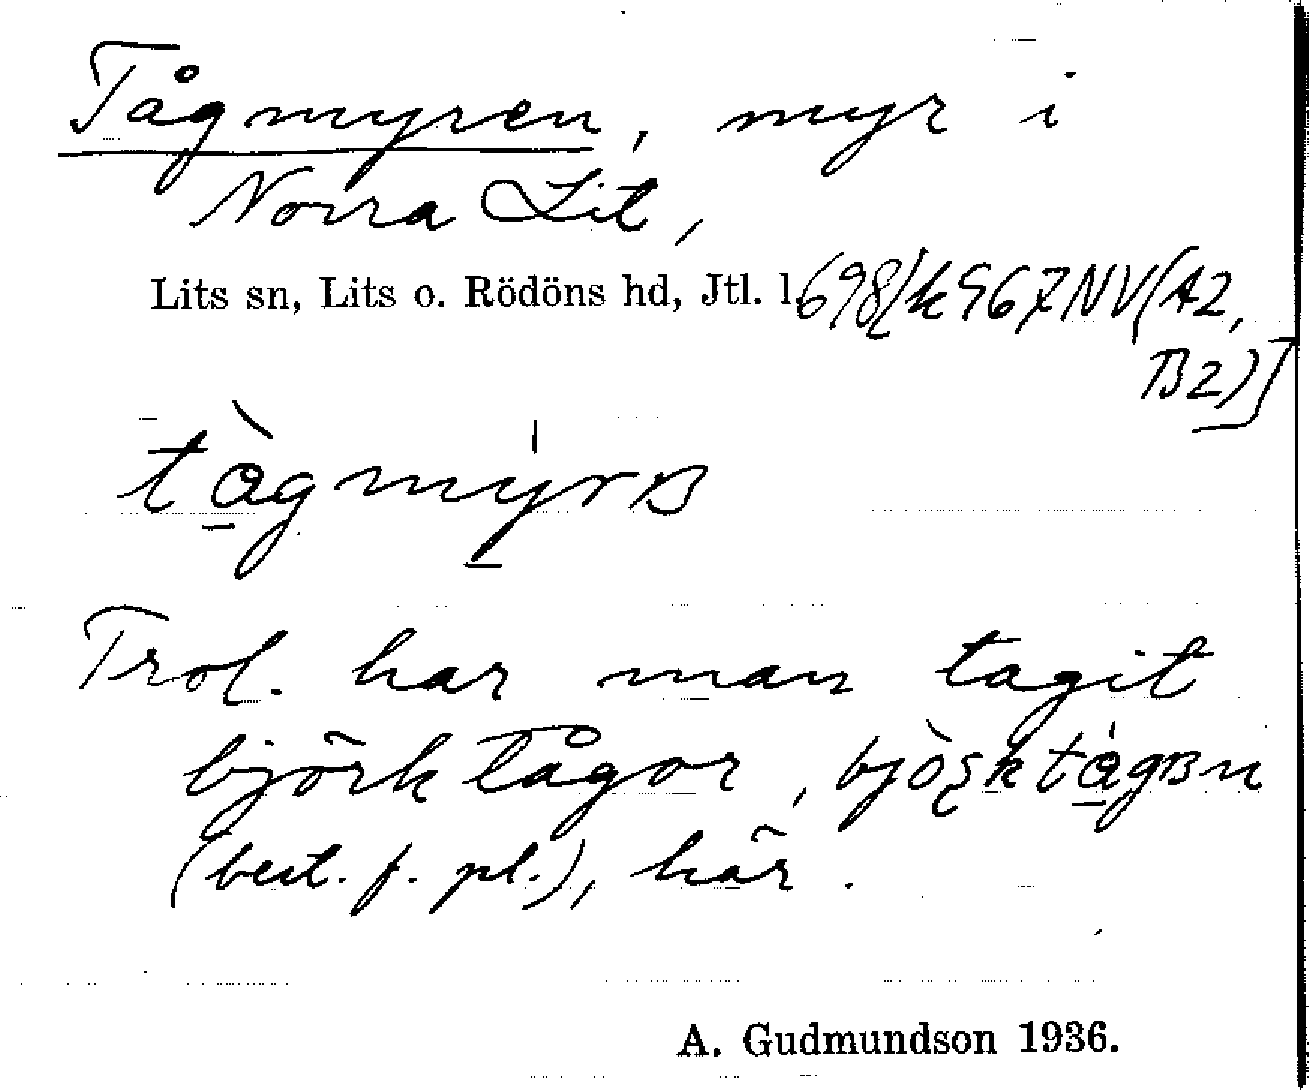 Tågmyren, myr i
Norra Lit,
Lits sn, Lits o. Rödöns hd, Jtl. l. 698/k967NV(A2,
B2)]
tågmyrʙ
Trol. har man tagit
björktågor,
(best. f. pl.), här.
A. Gudmundson 1936.